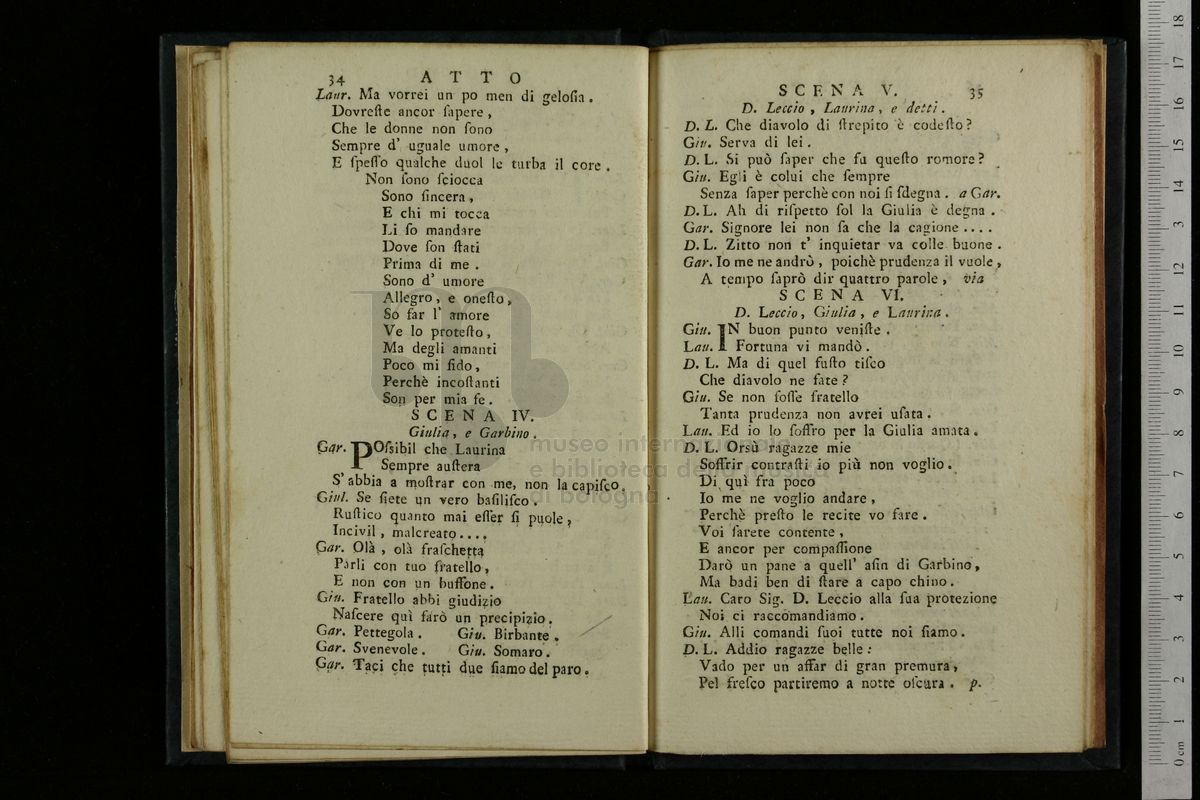 34 A T T O
Laur. Ma vorrei un po men di gelosia.
Dovreste ancor sapere,
Che le donne non sono
Sempre d' uguale umore,
E spesso qualche duol le turba il core.
Non sono sciocca
Sono sincera,
E chi mi tocca
Li so mandare
Dove son stati
Prima di me.
Sono d' umore
Allegro, e onesto,
So far l' amore
Ve lo protesto,
Ma degli amanti
Poco mi fido,
Perchè incostanti
Son per mia fe.
S C E N A IV.
Giulia, e Garbino.
Gar. POssibil che Laurina
Sempre austera
S' abbia a mostrar con me, non la capisco.
Giul. Se siete un vero basilisco.
Rustico quanto mai esser si puole,
Incivil, malcreato....
Gar. Olà, olà fraschetta
Parli con tuo fratello,
E non con un buffone.
Giu. Fratello abbi giudizio
Nascere quì farò un precipizio.
Gar. Pettegola. Giu. Birbante.
Gar. Svenevole. Giu. Somaro.
Gar. Taci che tutti due siamo del paro.
S C E N A V. 35
D. Leccio, Laurina, e detti.
D. L. Che diavolo di strepito è codesto?
Giu. Serva di lei.
D. L. Si può saper che fu questo romore?
Giu. Egli è colui che sempre
Senza saper perchè con noi si sdegna. a Gar.
D. L. Ah di rispetto sol la Giulia è degna.
Gar. Signore lei non sa che la cagione....
D. L. Zitto non t' inquietar va colle buone.
Gar. Io me ne andrò, poichè prudenza il vuole,
A tempo saprò dir quattro parole, via
S C E N A VI.
D. Leccio, Giulia, e Laurina.
Giu. IN buon punto veniste.
Lau. Fortuna vi mandò.
D. L. Ma di quel fusto tisco
Che diavolo ne fate?
Giu. Se non fosse fratello
Tanta prudenza non avrei usata.
Lau. Ed io lo soffro per la Giulia amata.
D. L. Orsù ragazze mie
Soffrir contrasti io più non voglio.
Di quì fra poco
Io me ne voglio andare,
Perchè presto le recite vo fare.
Voi sarete contente,
E ancor per compassione
Darò un pane a quell' asin di Garbino,
Ma badi ben di stare a capo chino.
Lau. Caro Sig. D. Leccio alla sua protezione
Noi ci raccomandiamo.
Giu. Alli comandi suoi tutte noi siamo.
D. L. Addio ragazze belle:
Vado per un affar di gran premura,
Pel fresco partiremo a notte oscura. p.
museo internazionale
e biblioteca della musica
di bologna
0 cm 1 2 3 4 5 6 7 8 9 10 11 12 13 14 15 16 17 18